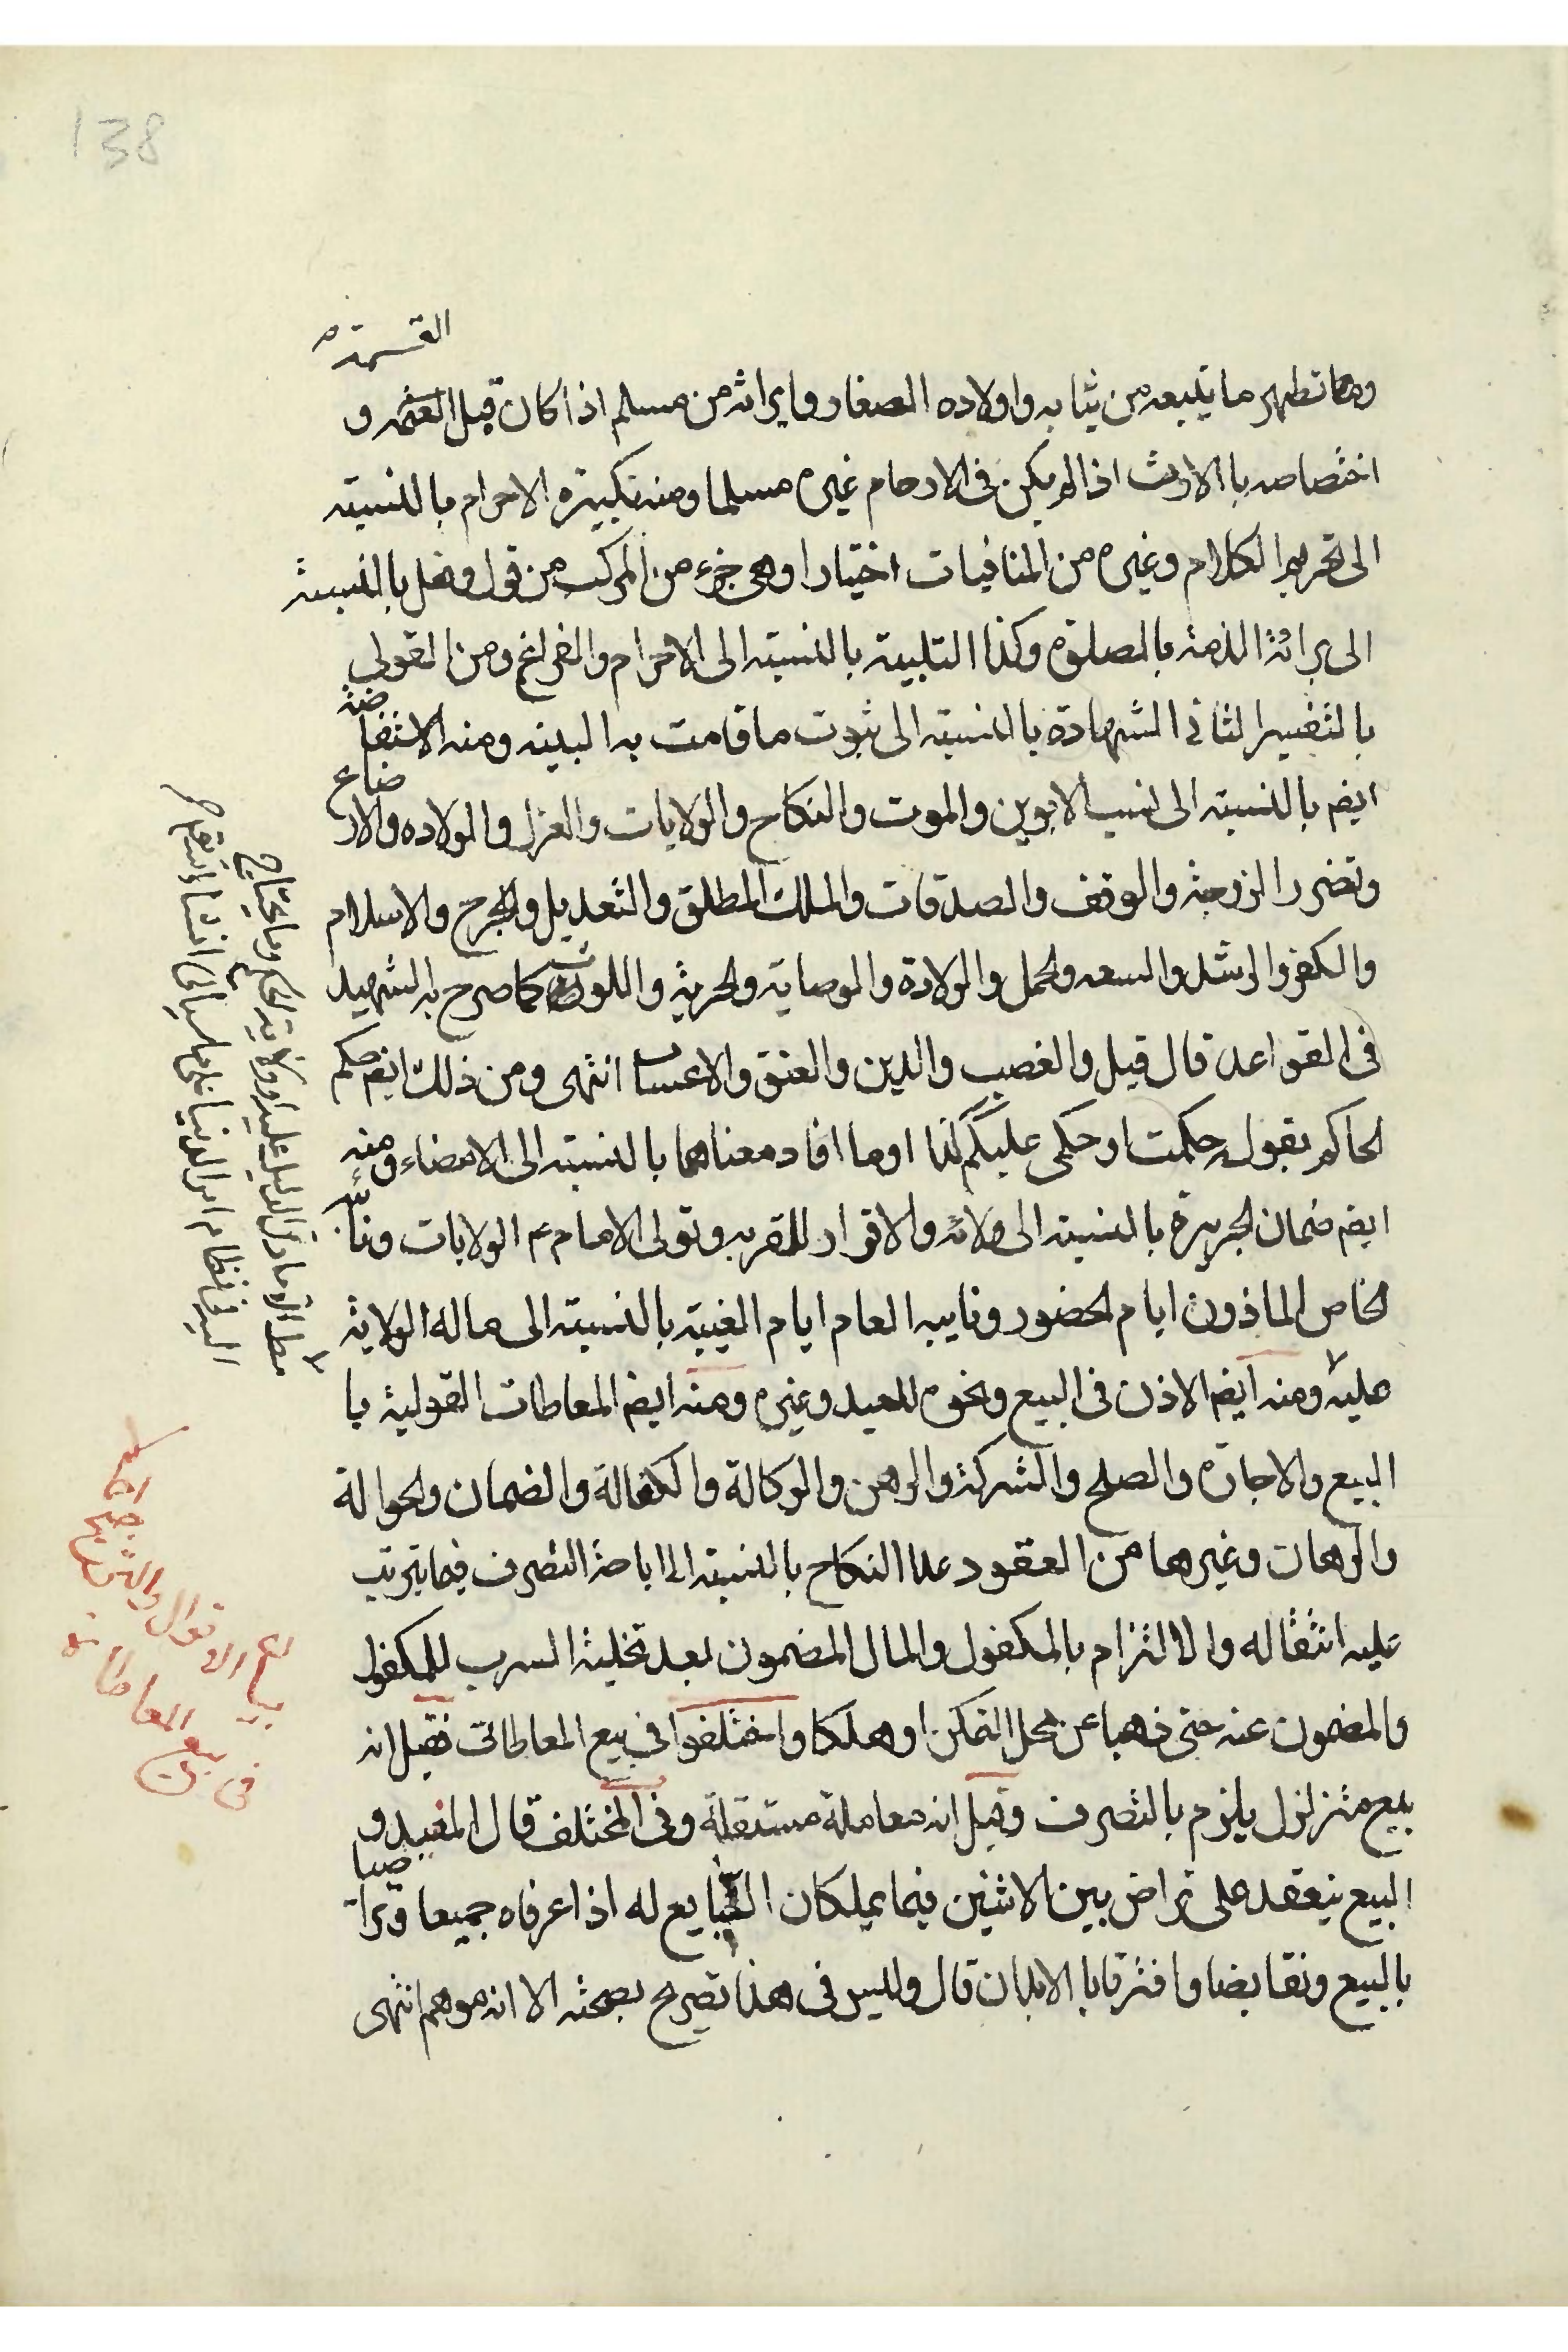 138
القسمة
وهما تطهير ما يتبعه من ثيابه واولاده الصغار وايراثه من مسلم اذا كان قبل القسمة و
اختصاصه بالارث اذا لم يكن فى الارحام غيره مسلما ومنه تكبيرة الاحرام بالنسبته
الى تحريم الكلام وغيره من المنافيات اختيارا وهى جزء من المركب من قول وفعل بالنسبة
الى برائة الذمة بالصلوة وكذا التلبية بالنسبته الى الاحرام والفراغ ومن القولى
بالتفسير الثانى الشهادة بالنسبته الى ثبوت ما قامت به البينه ومنه الاستفاضة
ايضم بالنسبته الى نسب الابوين والموت والنكاح والولايات والعزل والولاده والارضاع
وتضرر الزوجة والوقف والصدقات والملك المطلق والتعديل والجرح والاسلام
والكفر والرشد والسعه والحمل والولادة والوصاية والحرية واللوث كما صرح به الشهيد
فى القواعد قال قيل والغصب والدين والعتق والاعسار انتهى ومن ذلك ايضم حكم
الحاكم بقوله حكمت او حكمى عليكم كذا او ما افاد معناهما بالنسبته الى الامضاء ومنه
ايضم ضمان الجريرة بالنسبته الى ولائه والاقرار للمقر به وتولى الامام ع الولايات ونائبه
الخاص الماذون ايام الحضور ونايبه العام ايام الغيبة بالنسبته الى ماله الولاية
عليه ومنه ايضم الاذن فى البيع ونحوه للعبد وغيره ومنه ايضم المعاطات القولية با
البيع والاجارة والصلح والشركة والرهن والوكالة والكفالة والضمان والحوالة
والرهان وغيرها من العقود عدا النكاح بالنسبته الى اباحة التصرف فيما يترتب
عليه انتقاله والالتزام بالمكفول والمال المضمون بعد تخلية السرب للمكفول
والمضمون عنه حتى ذهبا عن محل التمكن او هلكا واختلفوا فى بيع المعاطات فقيل انه
بيع متزلزل يلزم بالتصرف وقيل انه معاملة مستقلة وفى المختلف قال المفيد و
البيع ينعقد على تراض بين الاثنين فيما يملكان التبايع له اذا عرفاه جميعا وتراضيا
بالبيع وتقابضا وافترقا بالابدان قال وليس فى هذا تصريح بصحته الا انه موهم انتهى
بيان الاقوال
فى بيع المعاطات